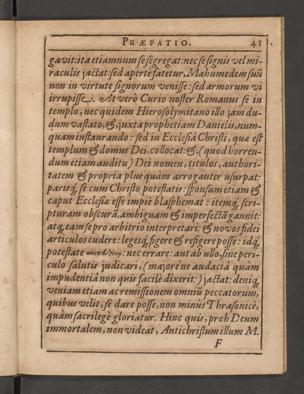 PRÆFATIO. 41
gavit: ita etiamnum se segregat: nec se signis vel mi-
raculis jactat: sed aperte fatetur, Mahumedem suũ
non in virtute signorum venisse: sed armorum vi
irrupisse. At verò Curio noster Romanus se in
templo, nec quidem Hierosolymitano illo jam du-
dum vastato, &, juxta prophetiam Danielis, num-
quam instaurando: sed in Ecclesia Christi, quæ est
templum & domus Dei, collocat: &, (quod horren-
dum etiam auditu) Dei nomen, titulos, authori-
tatem & propria plus quam arroganter usurpat:
pariq́; se cum Christo potestatis: sponsum etiam &
caput Ecclesiæ esse impiè blasphemat: itemq́; scri-
pturam obscurã, ambiguam & imperfectã gannit:
atq́; eam se pro arbitrio interpretari: & novos fidei
articulos cudere: legesq́; figere & refigere posse: idq́;
potestate nec errare: aut ab ullo, sine peri-
culo salutis judicari, (majore ne audaciâ quam
impudentiâ non quis facilè dixerit:) jactat: deniq́;
veniam etiam ac remissionem omniũ peccatorum,
quibus velit, se dare posse, non minùs Thrasonicè,
quàm sacrilegè gloriatur. Hinc quis, proh Deum
immortalem, non videat, Antichristum illum M.
F